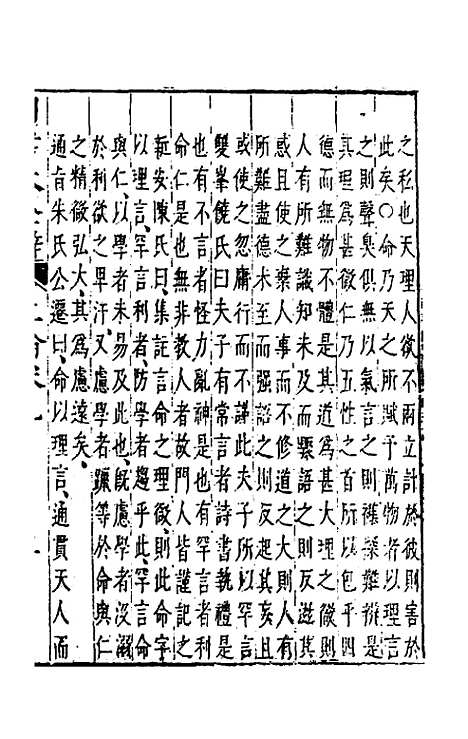 之私也天理人欲不兩立計於彼則害於
此矣〇命乃天之所賦予萬物者以理言
之則聲臭俱無以氣言之則襍糅難辨是
其理爲甚微仁乃五性之首所以包乎四
德而無物不體是其道爲甚大理之微則
人有所難識知未及而驟語之則反滋其
惑且使之棄人事而不修道之大則人有
所難盡德未至而强語之則反起其妄且
或使之忽庸行而不謹此夫子所以罕言
雙峯饒氏曰夫子有常言者詩書執禮是
也有不言者怪力亂神是也有罕言者利
命仁是也無非教人者故門人皆謹記之
新安陳氏曰集註言命之理微則此命字
以理言罕言利者防學者趨乎此罕言命
與仁以學者未易及此也旣慮學者沒溺
於利欲之卑汙又慮學者躐等於命與仁
之精微弘大其爲慮遠矣
通旨朱氏公遷曰命以理言通貫天人而